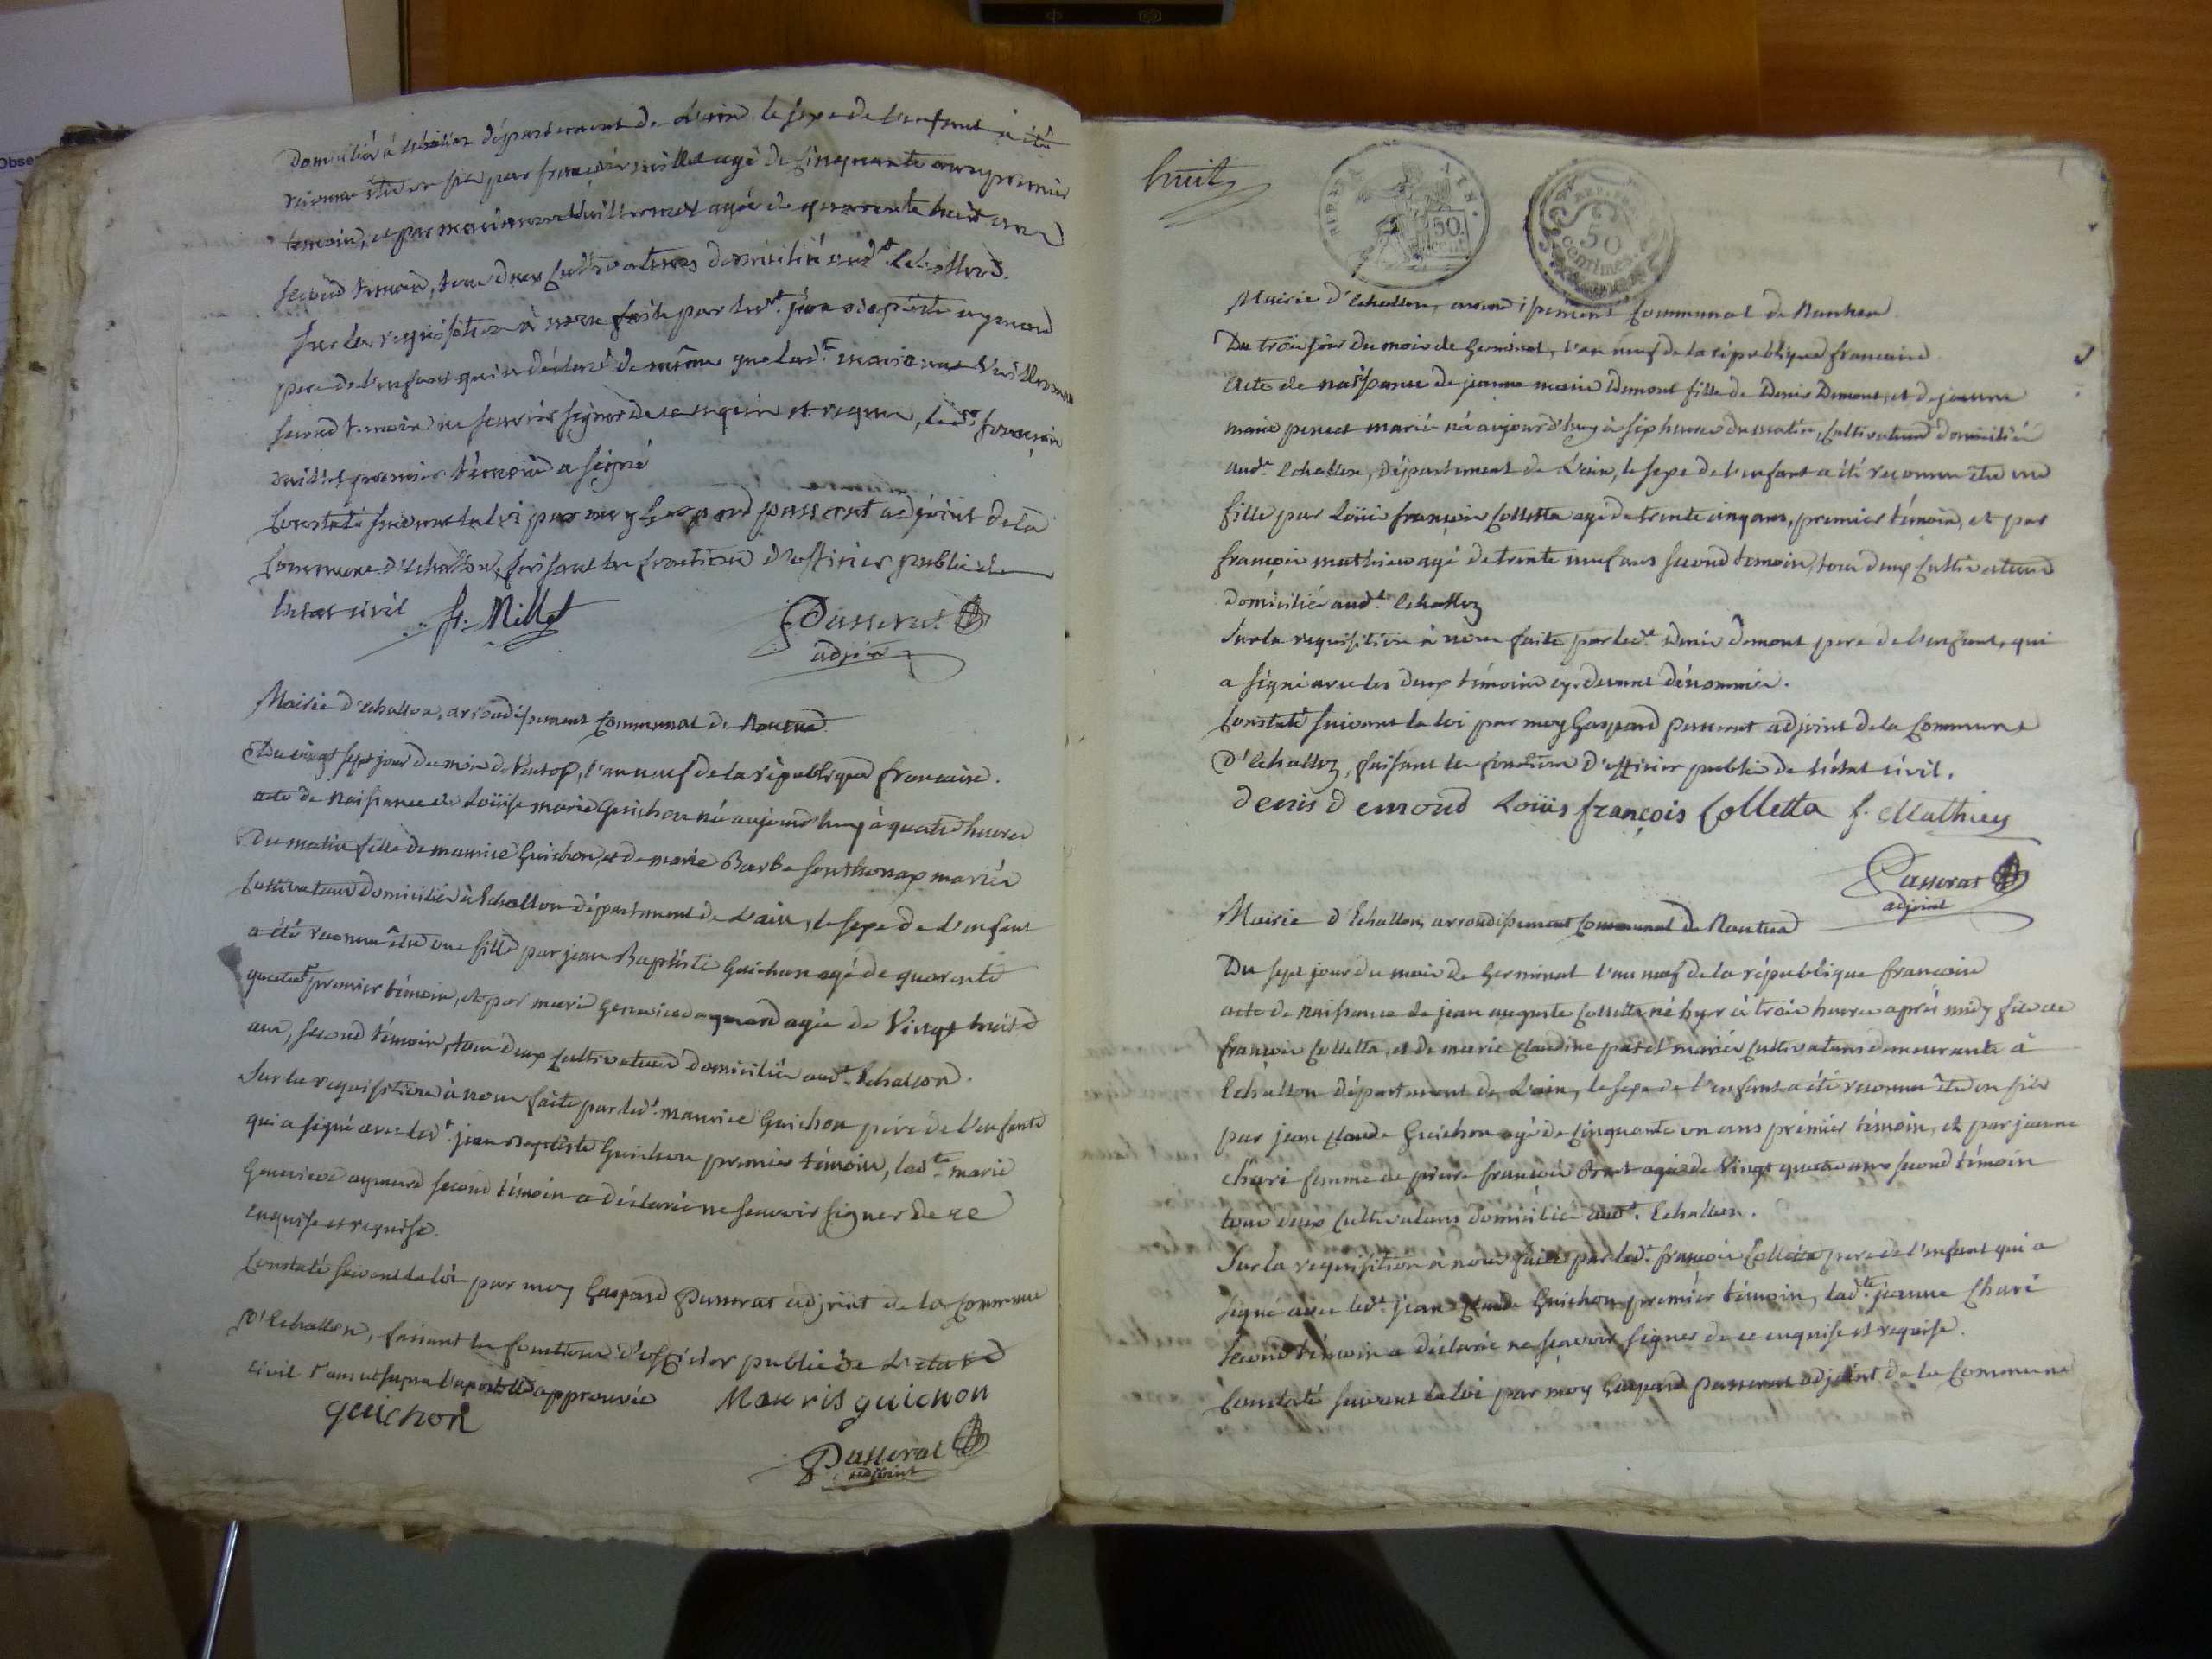 domicilié à échallon département de L'ain le sexe de l'enfant à été
reconnu être un fils par françois millet agé de cinquante ans premier
temoin, et par marianne Vuillermoz agée de quarante huit ans
second temoin, tous deux cultivateurs domicilié aud.t Echallon.
Sur la requisition à nous faite par led.t jean baptiste aymard
pere de l'enfant qui a déclaré de même que lad.te marianne Vuillermoz
second temoin ne scavoir signer de ce enquis et requis, led.t françois
millet premier témoin a signé
Constaté suivant la loi par moy Gaspard passerat adjoint de la
Commune d'Echallon, faisant les fonctions d'officier public de
l'état civil f. Millet Passerat
adjoint
Mairie d'Echallon, arrondissement Communal de Nantua
Du vingt sept jour du mois de Ventose, l'an neuf de la république francaise.
acte de Naissance de Loüise marie Guichon né aujourd'huy à quatre heures
Du matin fille de maurice Guichon, et de marie Barbe Sonthonax mariés
Cultivateurs domicilié à Echallon département de L'ain, le sexe de l'enfant
a été reconnu être une fille par jean Baptiste Guichon agé de quarente
quatre premier témoin, et par marie Genevieve aymard agée de Vingt huit
ans, second témoin, tous deux cultivateurs domicilié aud.t Echallon.
Sur la requisition à nous faite par led.t maurice Guichon père de l'enfant
qui a signé avec led.t jean Baptiste Guichon premier témoin, lad.te marie
Genevieve aymard second témoin a déclaré ne scavoir signer de ce
enquise et requise.
Constaté suivant la loi par moy Gaspard Passerat adjoint de la Commune
D'Echallon, faisant les fonctions d'officier public de L'etat
civil l'an ut supra l'apostille approuvée Mauris guichon
guichon
Passerat
adjoint
huit
50.
REP. FRA.
50
centimes
Mairie d'Echallon, arrondissement Communal de Nantua.
Du trois jour du mois de Germinal, l'an neuf de la république francaise
Acte de naissance de jeanne marie Demont fille de Denis Demont, et de jeanne
marie poncet marié né aujourd'huy à six heures du matin, Cultivateurs domiciliés
aud.t Echallon, département de L'ain, le sexe de l'enfant a été reconnu être une
fille par Loüis françois Colletta agé de trente cinq ans, premier témoin, et par
françois mathieu agé de trente neuf ans second temoin, tous deux Cultivateurs
domicilié aud.t Echallon
Sur la requisition à nous faite par led.t Denis Demont pere de l'enfant, qui
a signé avec les deux témoins cy-devant dénommés.
Constaté suivant la loi par moy Gaspard passerat adjoint de la Commune
D'Echallon, faisant les fonctions d'officier public de l'état civil.
denis demond Loüis françois Colletta f. Mathieu
Passerat
adjoint
Mairie d'Echallon, arrondissement Communal de Nantua
Du sept jour du mois de Germinal l'an neuf de la république francaise
acte de Naissance de jean auguste Colletta né hyer à trois heures après midy fils de
françois Colletta, et de marie Claudine poncet mariés cultivateurs demeurants à
Echallon département de L'ain, le sexe de l'enfant a été reconnu être un fils
par jean Claude Guichon agé de Cinquante un ans prémier témoin, et par jeanne
Chari femme de pierre françois agée de Vingt quatre ans second témoin
tous deux Cultivateurs domicilié aud.t Echallon.
Sur la requisition à nous faite par led.t françois Colletta pere de l'enfant qui a
signé avec led.t jean Claude Guichon premiér témoin, lad.te jeanne Chari
second témoin a déclaré ne scavoir signer de ce enquise et requise.
Constaté suivant la loi par moy Gaspard passerat adjoint de la Commune